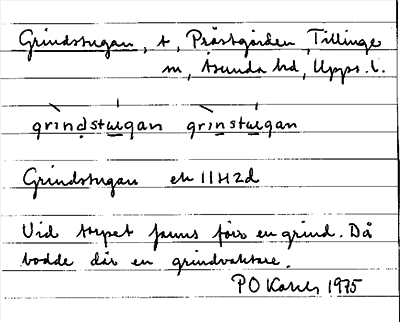 Grindstugan, t, Prästgården, Tillinge
sn, Åsunda hd, Upps. l.
grindstu̲gan grinstu̲gan
Grindstugan ek 11H2d
Vid torpet fanns förr en grind. Då
bodde där en grindvaktare.
PO 1975